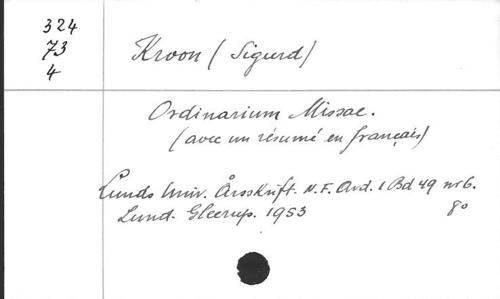 324
73
4
Kroon (Sigurd)
Ordinarium Missae.
(avec un résumé en français)
Lunds Univ. Årsskrift. N.F. Avd. 1 Bd 49 nr 6.
Lund. Gleerup. 1953 8o